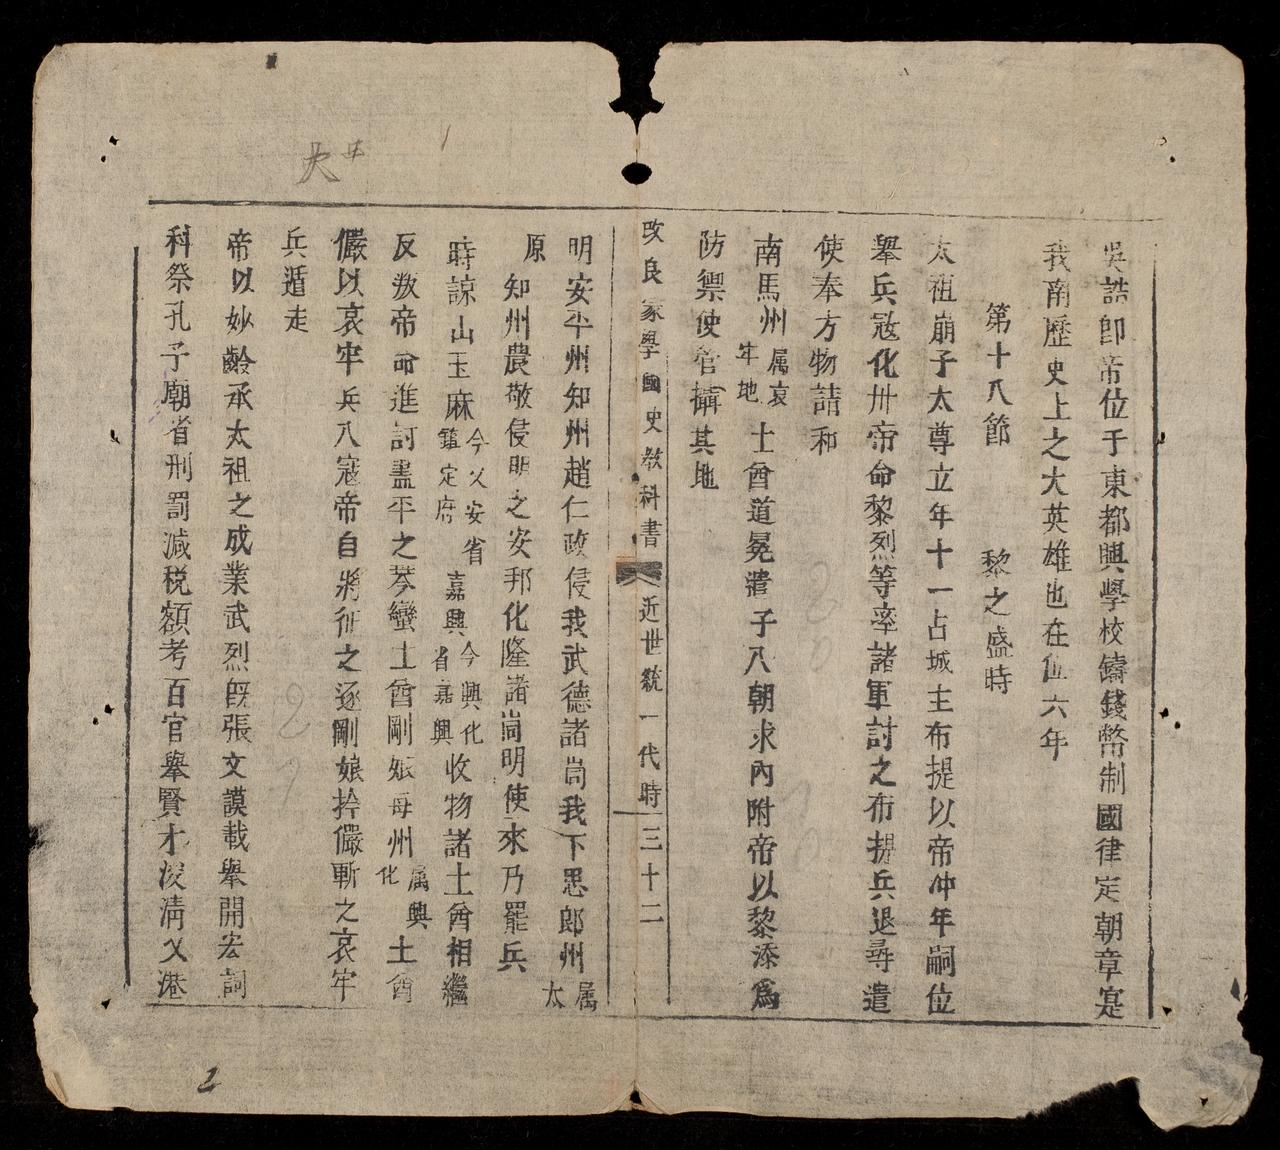 吳誥卽帝位于東都興學校鑄錢幣制國律定朝章寔
我南歷史上之大英雄也在位六年
第十八節 黎之盛時
太祖崩子太尊立年十一占城主布提以帝冲年嗣位
舉兵冦化州帝命黎烈等率諸軍討之布提兵退尋遣
使奉方物請和
南馬州属哀牢地土酋道冕遣子入朝求內附帝以黎添爲
防禦使管攝其地
改良蒙學國史教科書 近世統一代時 三十二
明安平州知州趙仁政侵我武德諸峝我下思郎州属太
原知州農敬侵明之安邦化隆諸峝明使來乃罷兵
時諒山玉麻今乂安省鎮定府嘉興今興化省嘉興收物諸土酋相繼
反叛帝命進討盡平之芩蠻土酋剛娘毋州属興化土酋
儼以哀牢兵入寇帝自將征之逐剛娘拎儼斬之哀牢
兵遁走
帝以妙齡承太祖之成業武烈旣張文謨載舉開宏詞
科祭孔子廟省刑罰減税額考百官舉賢才浚淸乂港